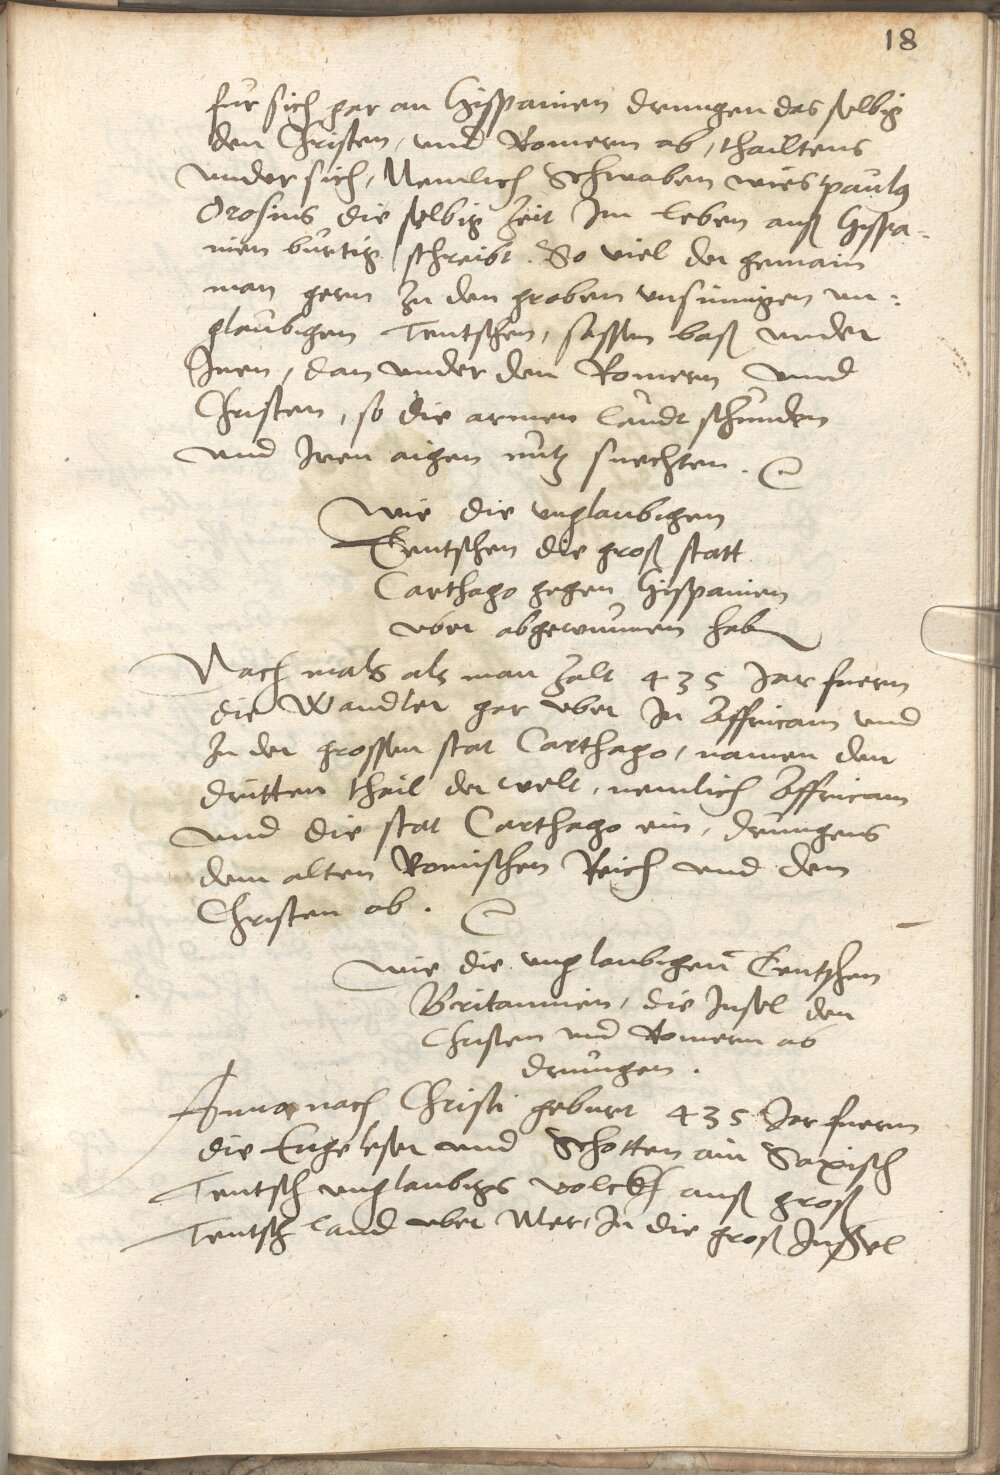 18
fur sich gar an Hispanien drungen das selbig
den Christen, und Romern ab, thailtens
under sich, Nemlich Schwaben wies paulus
Orosius die selbig Zeit Im leben auß Hispa-
nien burtig schreibt. So viel der gemain
man gern Zu den groben unsinnigen un-
glaubigen Teutschen, sassen baß under
Inen, dan under den Romern unnd
Christen, so die armen Leudt schunden
und Iren aigen nutz suechten.
Wie die unglaubigen
Teutschen die groß statt
Carthago gegen Hispanien
uber abgewunnen haben
Nach mals als man Zalt 435 Jar fuern
die Wandler gar uber In Affricam und
In der grossen stat Carthago, namen den
dritten thail der welt, nemlich Affricam
und die stat Carthago ein, drungens
dem alten Romischen Reich und den
Christen ab.
Wie die unglaubigen Teutschen
Britannien, die Insel den
Christen und Romern ab
drungen.
Anno nach Christi geburt 435 Jar fuern
die Engeleser und Schotten ain Saxisch
Teutsch unglaubigs volckh auß groß
Teutsch land uber Mer, In die groß Inssel